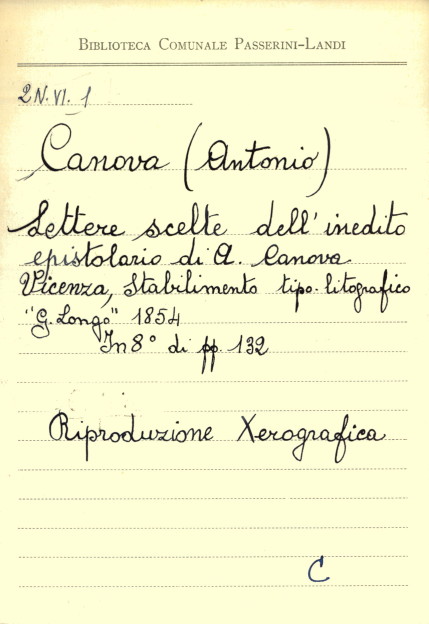 BIBLIOTECA COMUNALE PASSERINI-LANDI
2N.VI.1
Canova (Antonio)
Lettere scelte dell'inedito
epistolario di A. Canova
Vicenza, Stabilimento tipo-litografico
"G. Longo" 1854
In 8° di pp. 132
Riproduzione Xerografica
C